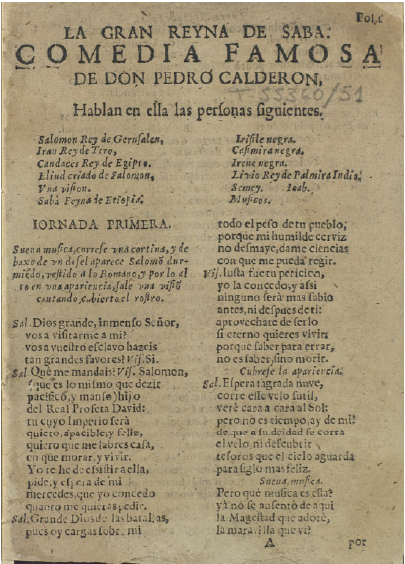 Fol.1
LA GRAN REYNA DE SABA:
COMEDIA FAMOSA
DE DON PEDRO CALDERON,
T-55360/51
Hablan en essa las personas siguientes.
Salomon Rey de Gerusalen,
Iran Rey de Tiro,
Candaces Rey de Egipto.
Eliud criado de Salomon,
Vna vision.
Sabà Reyna de Etiopia.
Irifile negra.
Casimira negra.
Irene negra.
Livio Rey de Palmira India,
Semey. Ioab.
Musicos.
IORNADA PRIMERA.
Suena musica, correse vna cortina, y de
baxo de vn dosel aparece Salomõ dur-
miẽdo, vestido a lo Romano, y por lo al
to en vna apariencia, sale vna visiõ
cantando, cubierto el rostro.
Sal. Dios grande, inmenso Señor,
vos a visitarme a mi?
vos a vuestro esclavo hazeis
tan grandes favores? Vis. Si.
Sal. Que me mandais? Vis. Salomon,
que es lo mismo que dezir
pacifico, y manso) hijo
del Real Profeta David:
tu cuyo Imperio serà
quieto, apacible, y feliz,
quiero que me labres casa,
en que morar, y vivir.
Yo te he de assistir a ella,
pide, y espera de mi
mercedes, que yo concedo
quanto me quieras pedir.
Sal. Grande Dios de las batallas,
pues oy cargas sobre mi
todo el peso de tu pueblo,
porque mi humilde cerviz
no desmaye, dame ciencias
con que me pueda regir.
Vis. Iusta fue tu peticion,
yo la concedo, y assi
ninguno serà mas sabio
antes, ni despues de ti:
aprovechate de serlo
si eterno quieres vivir,
porque saber para errar,
no es saber, sino morir.
Cubrese la apariencia.
Sal. Espera sagrada nuve,
corre esse velo sutil,
verè cara a cara al Sol:
pero no es tiempo, ay de mi!
de que a su deidad se corra
el velo, ni descubrir
tesoros que el cielo aguarda
para siglo mas feliz.
Suena musica.
Pero què musica es esta?
yà no se ausentò de aqui
la Magestad que adorè,
la maravilla que vi?
A
por